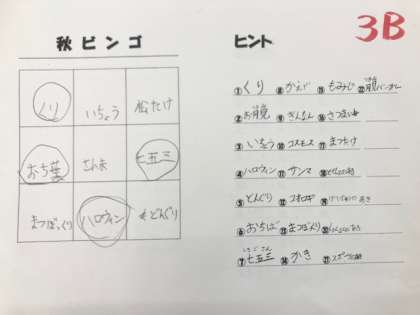 3B
秋ビンゴ
ヒント
クリ
いちょう
松たけ
おち葉
さんま
七五三
まつぼっくり
ハロウィン
どんぐり
①くり ⑧かえで ⑮もみじ
②お月見 ⑨ぎんなん ⑯さつまいも
③いちょう ⑩コスモス ⑰まつたけ
④ハロウィン ⑪サンマ
⑤どんぐり ⑫コオロギ
⑥おちば ⑬まつぼっくり
しちごさん
⑦七五三 ⑭かき ㉑スポーツの秋